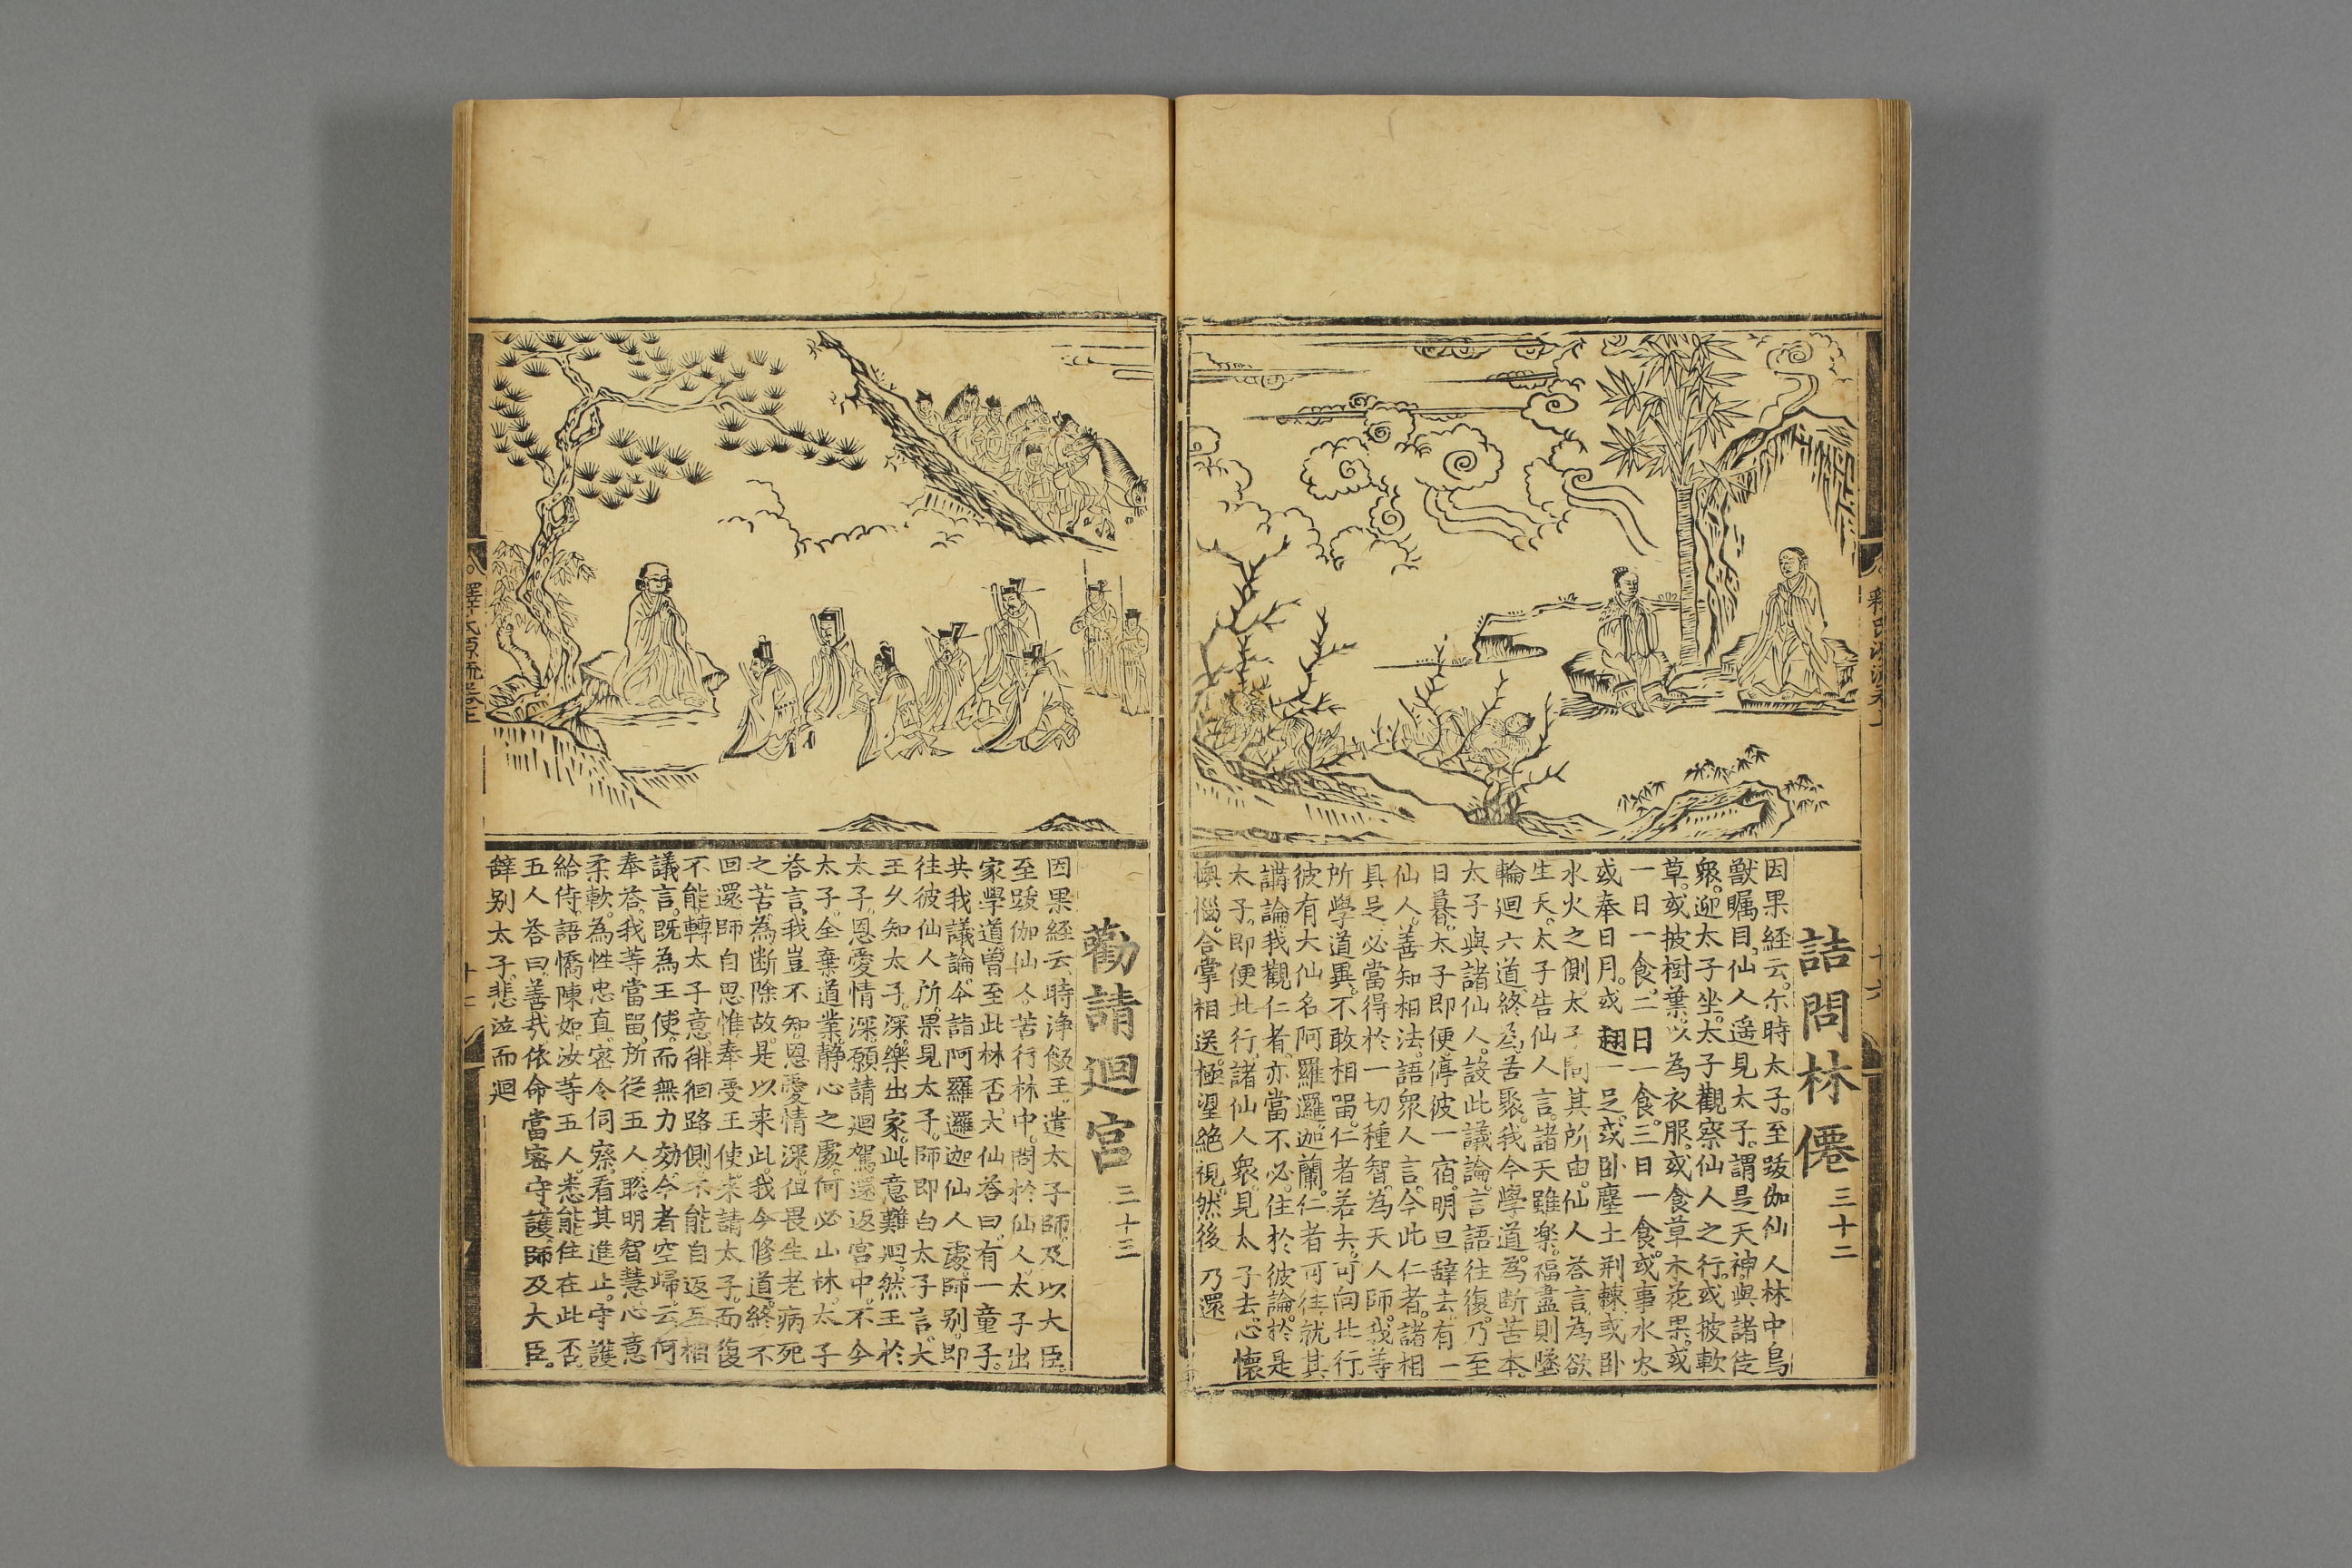 詰問林僊三十二
因果経云。尓時太子。至跋伽仙人林中鳥
獸矚目仙人遥見太子。謂是天神。與諸徒
衆。迎太子坐。太子觀察仙人之行。或披軟
草。或披樹葉。以為衣服。或食草木花果。或
一日一食。二日一食。三日一食。或事水火
或奉日月。或翹一足。或卧塵土荆棘。或卧
水火之側。太子問其所由。仙人荅言。為欲
生天。太子告仙人言。諸天雖樂。福盡則墜
輪迴六道。終為苦聚。我今學道。為断苦本。
太子與諸仙人。設此議論。言語往復。乃至
日暮。太子即便停彼一宿。明旦辞去。有一
仙人。善知相法。語衆人言。今此仁者。諸相
具足。必當得於一切種智。為天人師。我等
所學道異。不敢相畱。仁者若去。可向北行。
彼有大仙名阿羅邏迦蘭。仁者可往就其
講論。我觀仁者。亦當不必住於彼論。於是
太子。即便北行。諸仙人衆。見太子去。心懷
懊惱。合掌相送。極望絶視。然後乃還
釋氏源流卷上
十六
勸請迴宮三十三
因果経云。時浄飯王。遣太子師。及以大臣。
至跋伽仙人。苦行林中。問於仙人。太子出
家學道曽至此林否。大仙荅曰。有一童子。
共我議論。今詣阿羅邏迦仙人䖏。師别。即
往彼仙人所。果見太子。師即白太子言。大
王久知太子。深樂出家。此意難迴。然王於
太子。恩愛情深。願請迴駕還返宮中。不令
太子。全棄道業。静心之䖏。何必山林。太子
荅言。我豈不知恩愛情深。但畏生老病死
之苦。為断除故。是以来此。我今修道。終不
回還。師自思惟奉受王使。来請太子。而復
不能轉太子意。徘徊路側。不能自返。互相
議言。既為王使。而無力効。今者空歸。云何
奉荅。我等當畱。所從五人。聡明智慧。心意
柔軟。為性忠直。宻令伺察。看其進止。守護
給侍。語憍陳如。汝等五人。悉能住在此否。
五人荅曰。善㢤依命當宻守護。師及大臣。
辝别太子。悲泣而迴
釋氏源流卷上
十七